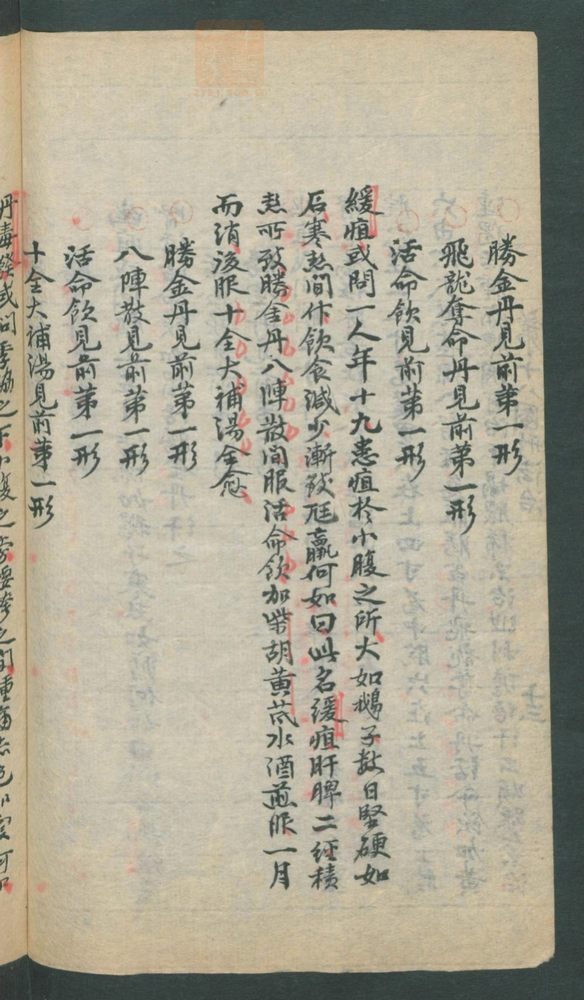 勝金丹見前第一形
飛龍奪命丹見前第一形
活命飲見前第一形
緩疽或問一人年十九患疽於小腹之所大如鵝子數日堅硬如
石寒熱間作飲食減少漸致尫羸何如曰此名緩疽肝脾二經積
熱所致勝金丹八陣散間服活命飲加柴胡黃芪水酒煎服一月
而消後服十全大補湯全愈
勝金丹見前第一形
八陣散見前第一形
活命飲見前第一形
十全大補湯見前第一形
丹毒發或問季脇之下小腹之旁腰胯之間